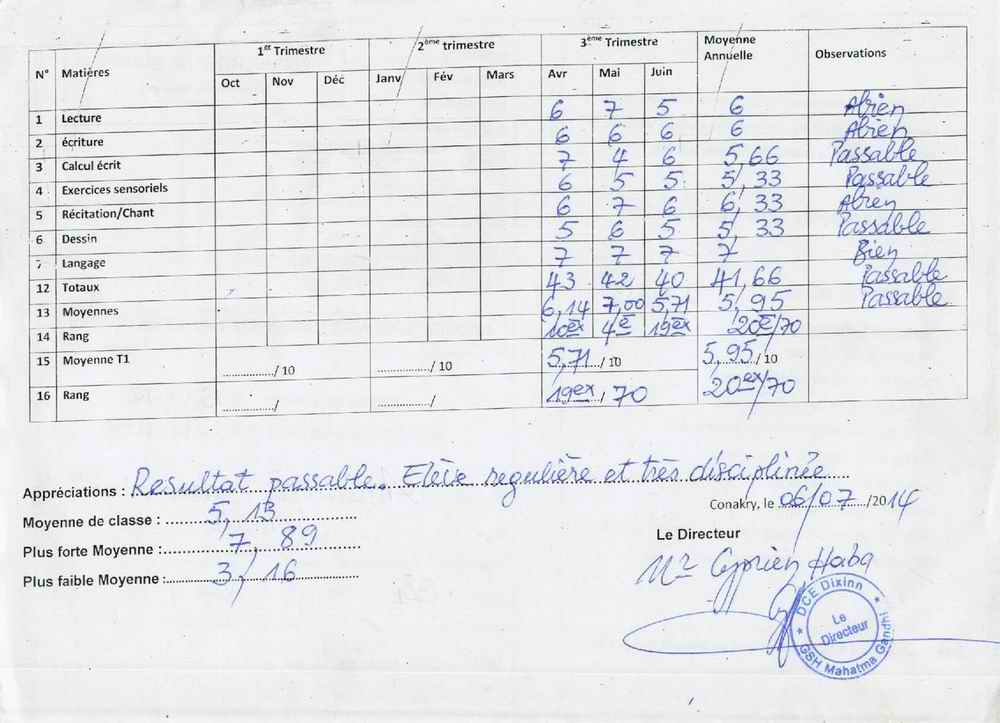 N° Matières 1er Trimestre 2ème trimestre 3ème Trimestre Moyenne Annuelle Observations
Oct Nov Déc Janv Fév Mars Avr Mai Juin
1 Lecture 6 7 5 6 Abien
2 écriture 6 6 6 6 Abien
3 Calcul écrit 7 4 6 5,66 Passable
4 Exercices sensoriels 6 5 5 5,33 Passable
5 Récitation/Chant 6 7 6 6,33 Abien
6 Dessin 5 6 5 5,33 Passable
7 Langage 7 7 7 7 Bien
12 Totaux 43 42 40 41,66 Passable
13 Moyennes 6,14 7,00 5,71 5,95 Passable
14 Rang 10ex 4e 19ex 20e/70
15 Moyenne T1 ............../ 10 ............../ 10 5,71../ 10 5,95./ 10
16 Rang ............../ ............../ 19ex / 70 20ex/70
Appréciations : Resultat passable. Elève regulière et très disciplinée
Conakry, le 06/07/2014
Moyenne de classe : 5,13
Plus forte Moyenne : 7,89
Plus faible Moyenne : 3,16
Le Directeur
Mr Cyprien Haba
DCE Dixinn
Le Directeur
GSH Mahatma Gandhi